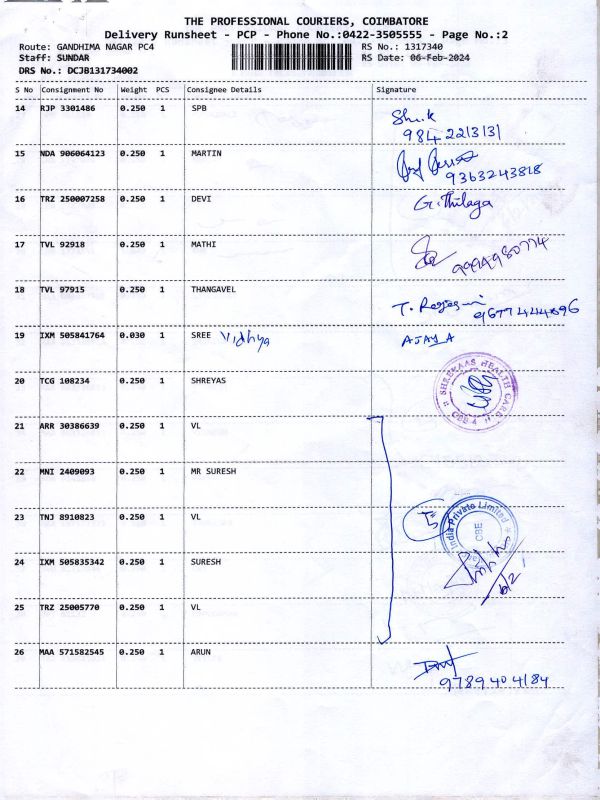 THE PROFESSIONAL COURIERS, COIMBATORE
Delivery Runsheet - PCP - Phone No.:0422-3505555 - Page No.:2
Route: GANDHIMA NAGAR PC4 RS No.: 1317340
Staff: SUNDAR RS Date: 06-Feb-2024
DRS No.: DCJB131734002
S No Consignment No Weight PCS Consignee Details Signature
14 RJP 3301486 0.250 1 SPB
984 2213131
15 NDA 906064123 0.250 1 MARTIN
9363243818
16 TRZ 250007258 0.250 1 DEVI G.Thilaga
17 TVL 92918 0.250 1 MATHI
18 TVL 97915 0.250 1 THANGAVEL T.
19 IXM 505841764 0.030 1 SREE Vidhya AJAY A
20 TCG 108234 0.250 1 SHREYAS SHREEKAAS HEALTH CARE
21 ARR 30386639 0.250 1 VL
22 MNI 2409093 0.250 1 MR SURESH
23 TNJ 8910823 0.250 1 VL 5 India Private Limited CBE
24 IXM 505835342 0.250 1 SURESH 6/2
25 TRZ 25005770 0.250 1 VL
26 MAA 571582545 0.250 1 ARUN
9789404184